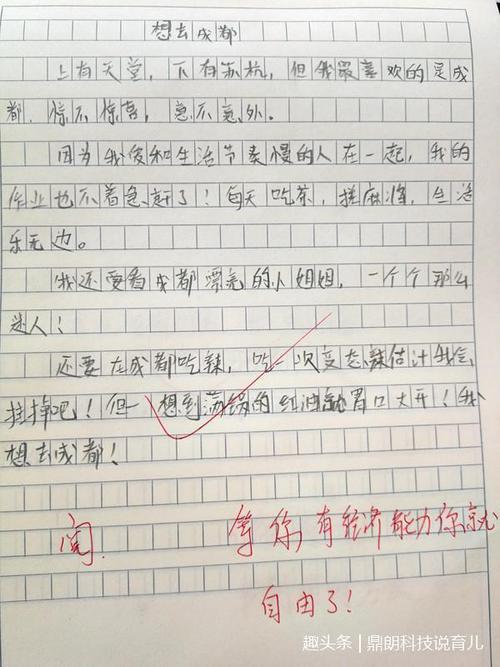 想去成都
上有天堂，下有苏杭，但我最喜欢的是成
都.惊不惊喜，意不意外。
因为我爱和生活节奏慢的人在一起，我的
作业也不着急赶了！每天吃茶，搓麻将，生活
乐无边。
我还要看成都漂亮的小姐姐，一个个那么
迷人！
还要在成都吃辣，吃一次变态辣估计我会
挂掉吧！但一想到满锅的红油就胃口大开！我
想去成都！
阅.
等你有经济能力你就
自由了！
趣头条｜鼎朗科技说育儿